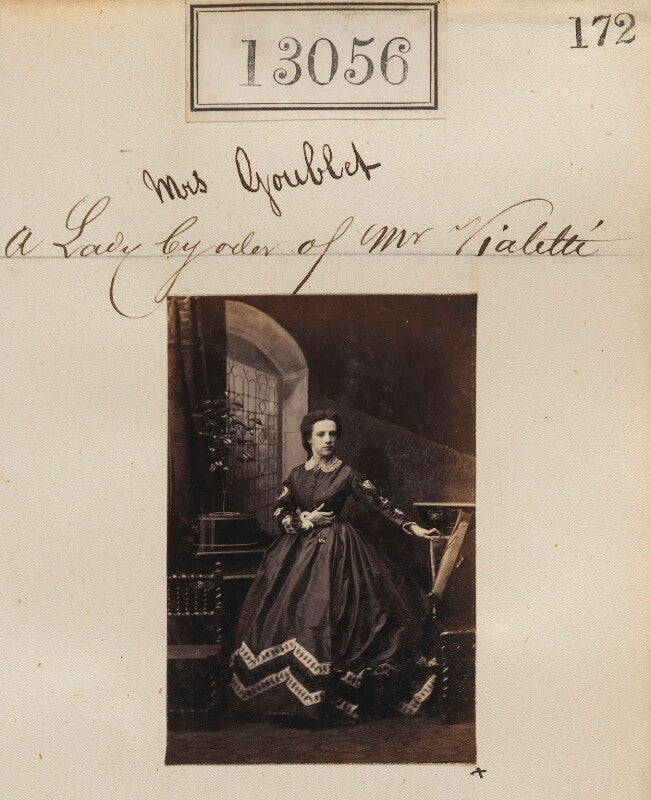 13056
172
Mrs Goublet
A Lady by oder of Mr Vialetti
x